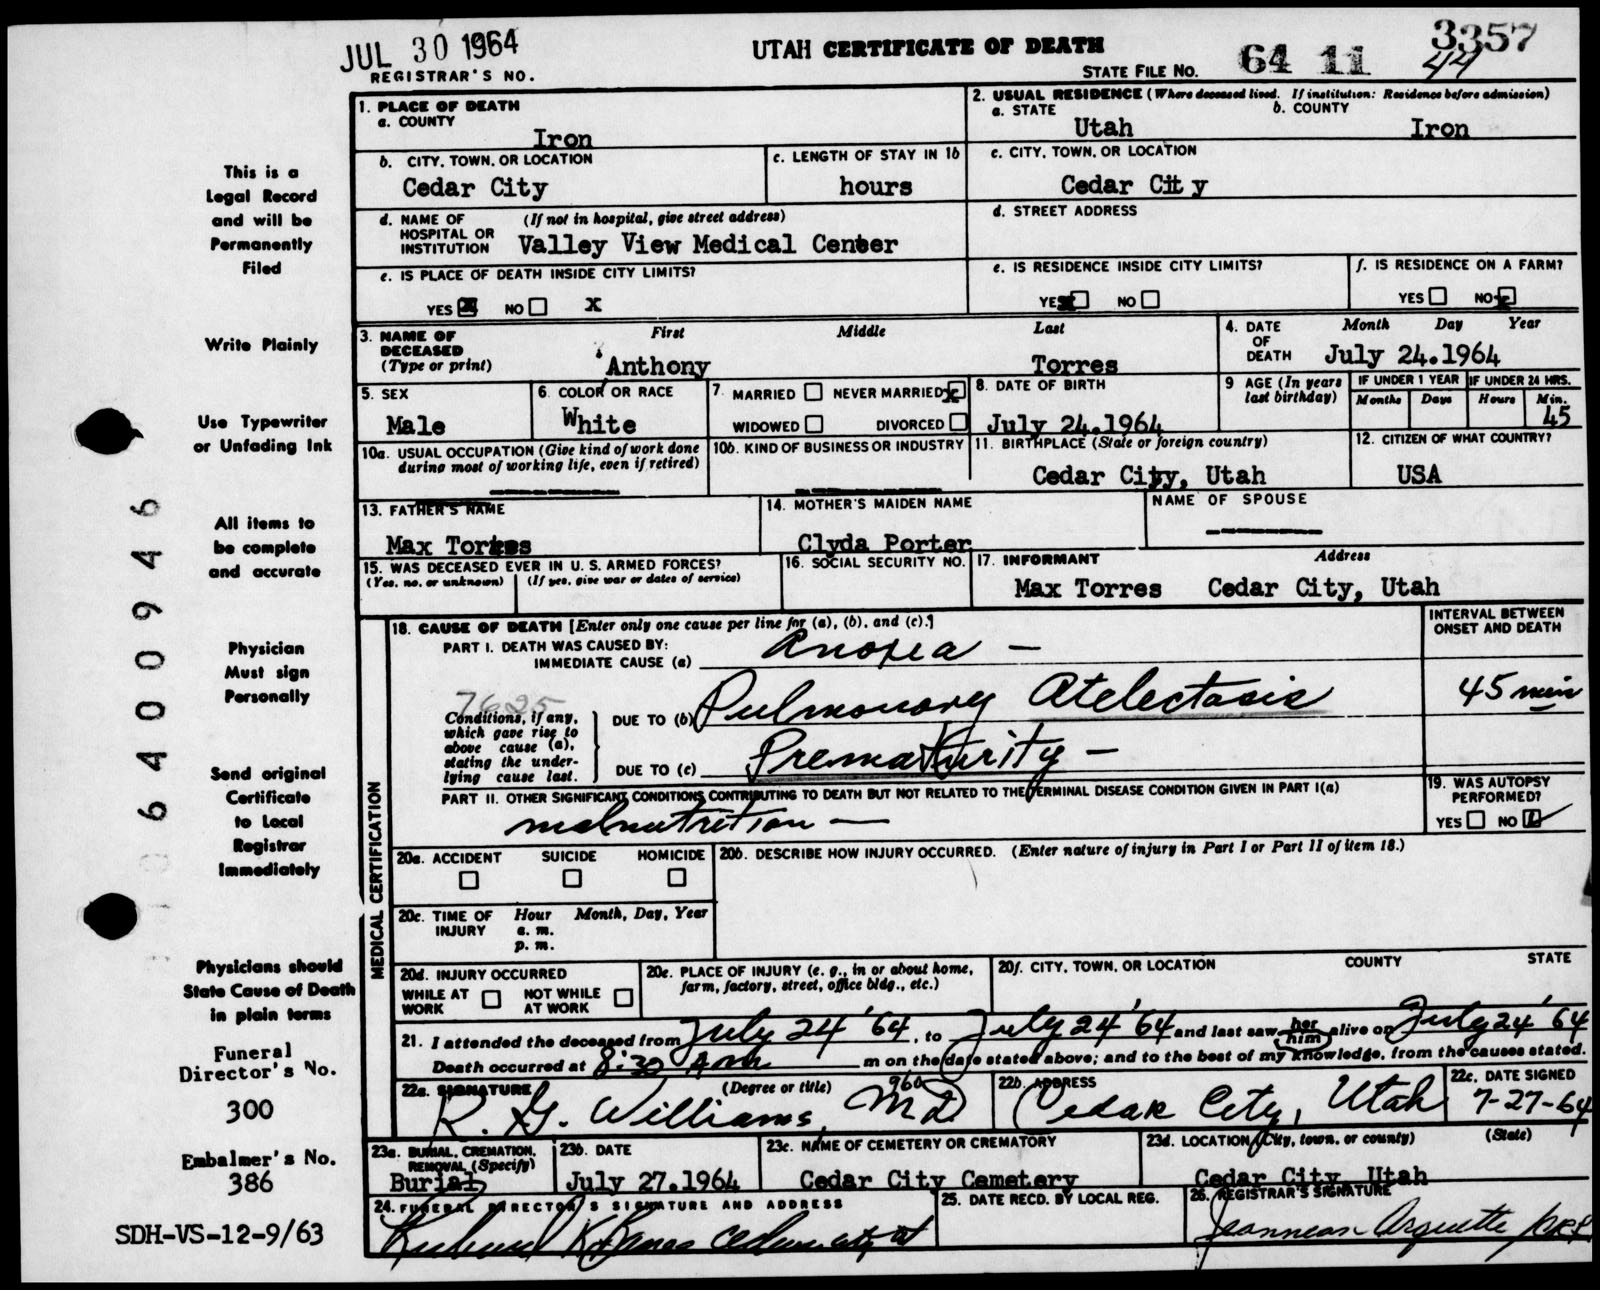 JUL 30 1964
REGISTRAR'S NO.
UTAH CERTIFICATE OF DEATH
STATE FILE NO. 64 11 3357
44
1. PLACE OF DEATH
a. COUNTY
Iron
2. USUAL RESIDENCE (Where deceased lived. If institution: Residence before admission)
a. STATE
Utah
b. COUNTY
Iron
b. CITY, TOWN, OR LOCATION
Cedar City
c. LENGTH OF STAY IN 1b
hours
c. CITY, TOWN, OR LOCATION
Cedar City
d. NAME OF HOSPITAL OR INSTITUTION
(If not in hospital, give street address)
Valley View Medical Center
d. STREET ADDRESS
e. IS PLACE OF DEATH INSIDE CITY LIMITS?
YES X NO X
e. IS RESIDENCE INSIDE CITY LIMITS?
YES X NO
f. IS RESIDENCE ON A FARM?
YES NO X
3. NAME OF DECEASED (Type or print)
First Middle Last
Anthony Torres
4. DATE OF DEATH
Month Day Year
July 24.1964
5. SEX
Male
6. COLOR OR RACE
White
7. MARRIED NEVER MARRIED X
WIDOWED DIVORCED
8. DATE OF BIRTH
July 24.1964
9 AGE (In years last birthday)
IF UNDER 1 YEAR IF UNDER 24 HRS.
Months Days Hours Min.
45
10a. USUAL OCCUPATION (Give kind of work done during most of working life, even if retired)
10b. KIND OF BUSINESS OR INDUSTRY
11. BIRTHPLACE (State or foreign country)
Cedar City, Utah
12. CITIZEN OF WHAT COUNTRY?
USA
13. FATHER'S NAME
Max Torres
14. MOTHER'S MAIDEN NAME
Clyda Porter
NAME OF SPOUSE
15. WAS DECEASED EVER IN U. S. ARMED FORCES?
(Yes, no, or unknown) (If yes, give war or dates of service)
16. SOCIAL SECURITY NO.
17. INFORMANT Address
Max Torres Cedar City, Utah
MEDICAL CERTIFICATION
18. CAUSE OF DEATH [Enter only one cause per line for (a), (b), and (c).]
PART I. DEATH WAS CAUSED BY:
IMMEDIATE CAUSE (a) Anoxia —
INTERVAL BETWEEN ONSET AND DEATH
7625
Conditions, if any, which gave rise to above cause (a), stating the underlying cause last.
DUE TO (b) Pulmonary Atelectasis
45 min
DUE TO (c) Prematurity —
PART II. OTHER SIGNIFICANT CONDITIONS CONTRIBUTING TO DEATH BUT NOT RELATED TO THE TERMINAL DISEASE CONDITION GIVEN IN PART I(a)
malnutrition —
19. WAS AUTOPSY PERFORMED?
YES NO
20a. ACCIDENT SUICIDE HOMICIDE
20b. DESCRIBE HOW INJURY OCCURRED. (Enter nature of injury in Part I or Part II of item 18.)
20c. TIME OF INJURY Hour Month, Day, Year
a. m.
p. m.
20d. INJURY OCCURRED
WHILE AT WORK NOT WHILE AT WORK
20e. PLACE OF INJURY (e. g., in or about home, farm, factory, street, office bldg., etc.)
20f. CITY, TOWN, OR LOCATION COUNTY STATE
21. I attended the deceased from July 24 '64, to July 24 '64 and last saw her him alive on July 24 '64
Death occurred at 8:30 AM m on the date stated above; and to the best of my knowledge, from the causes stated.
22a. SIGNATURE (Degree or title) 960
R. G. Williams, MD
22b. ADDRESS
Cedar City, Utah
22c. DATE SIGNED
7-27-64
23a. BURIAL, CREMATION, REMOVAL (Specify)
Burial
23b. DATE
July 27.1964
23c. NAME OF CEMETERY OR CREMATORY
Cedar City Cemetery
23d. LOCATION (City, town, or county) (State)
Cedar City Utah
24. FUNERAL DIRECTOR'S SIGNATURE AND ADDRESS
25. DATE RECD. BY LOCAL REG.
26. REGISTRAR'S SIGNATURE
This is a
Legal Record
and will be
Permanently
Filed
Write Plainly
Use Typewriter
or Unfading Ink
All items to
be complete
and accurate
Physician
Must sign
Personally
Send original
Certificate
to Local
Registrar
Immediately
Physicians should
State Cause of Death
in plain terms
Funeral
Director's No.
300
Embalmer's No.
386
SDH-VS-12-9/63
6400946